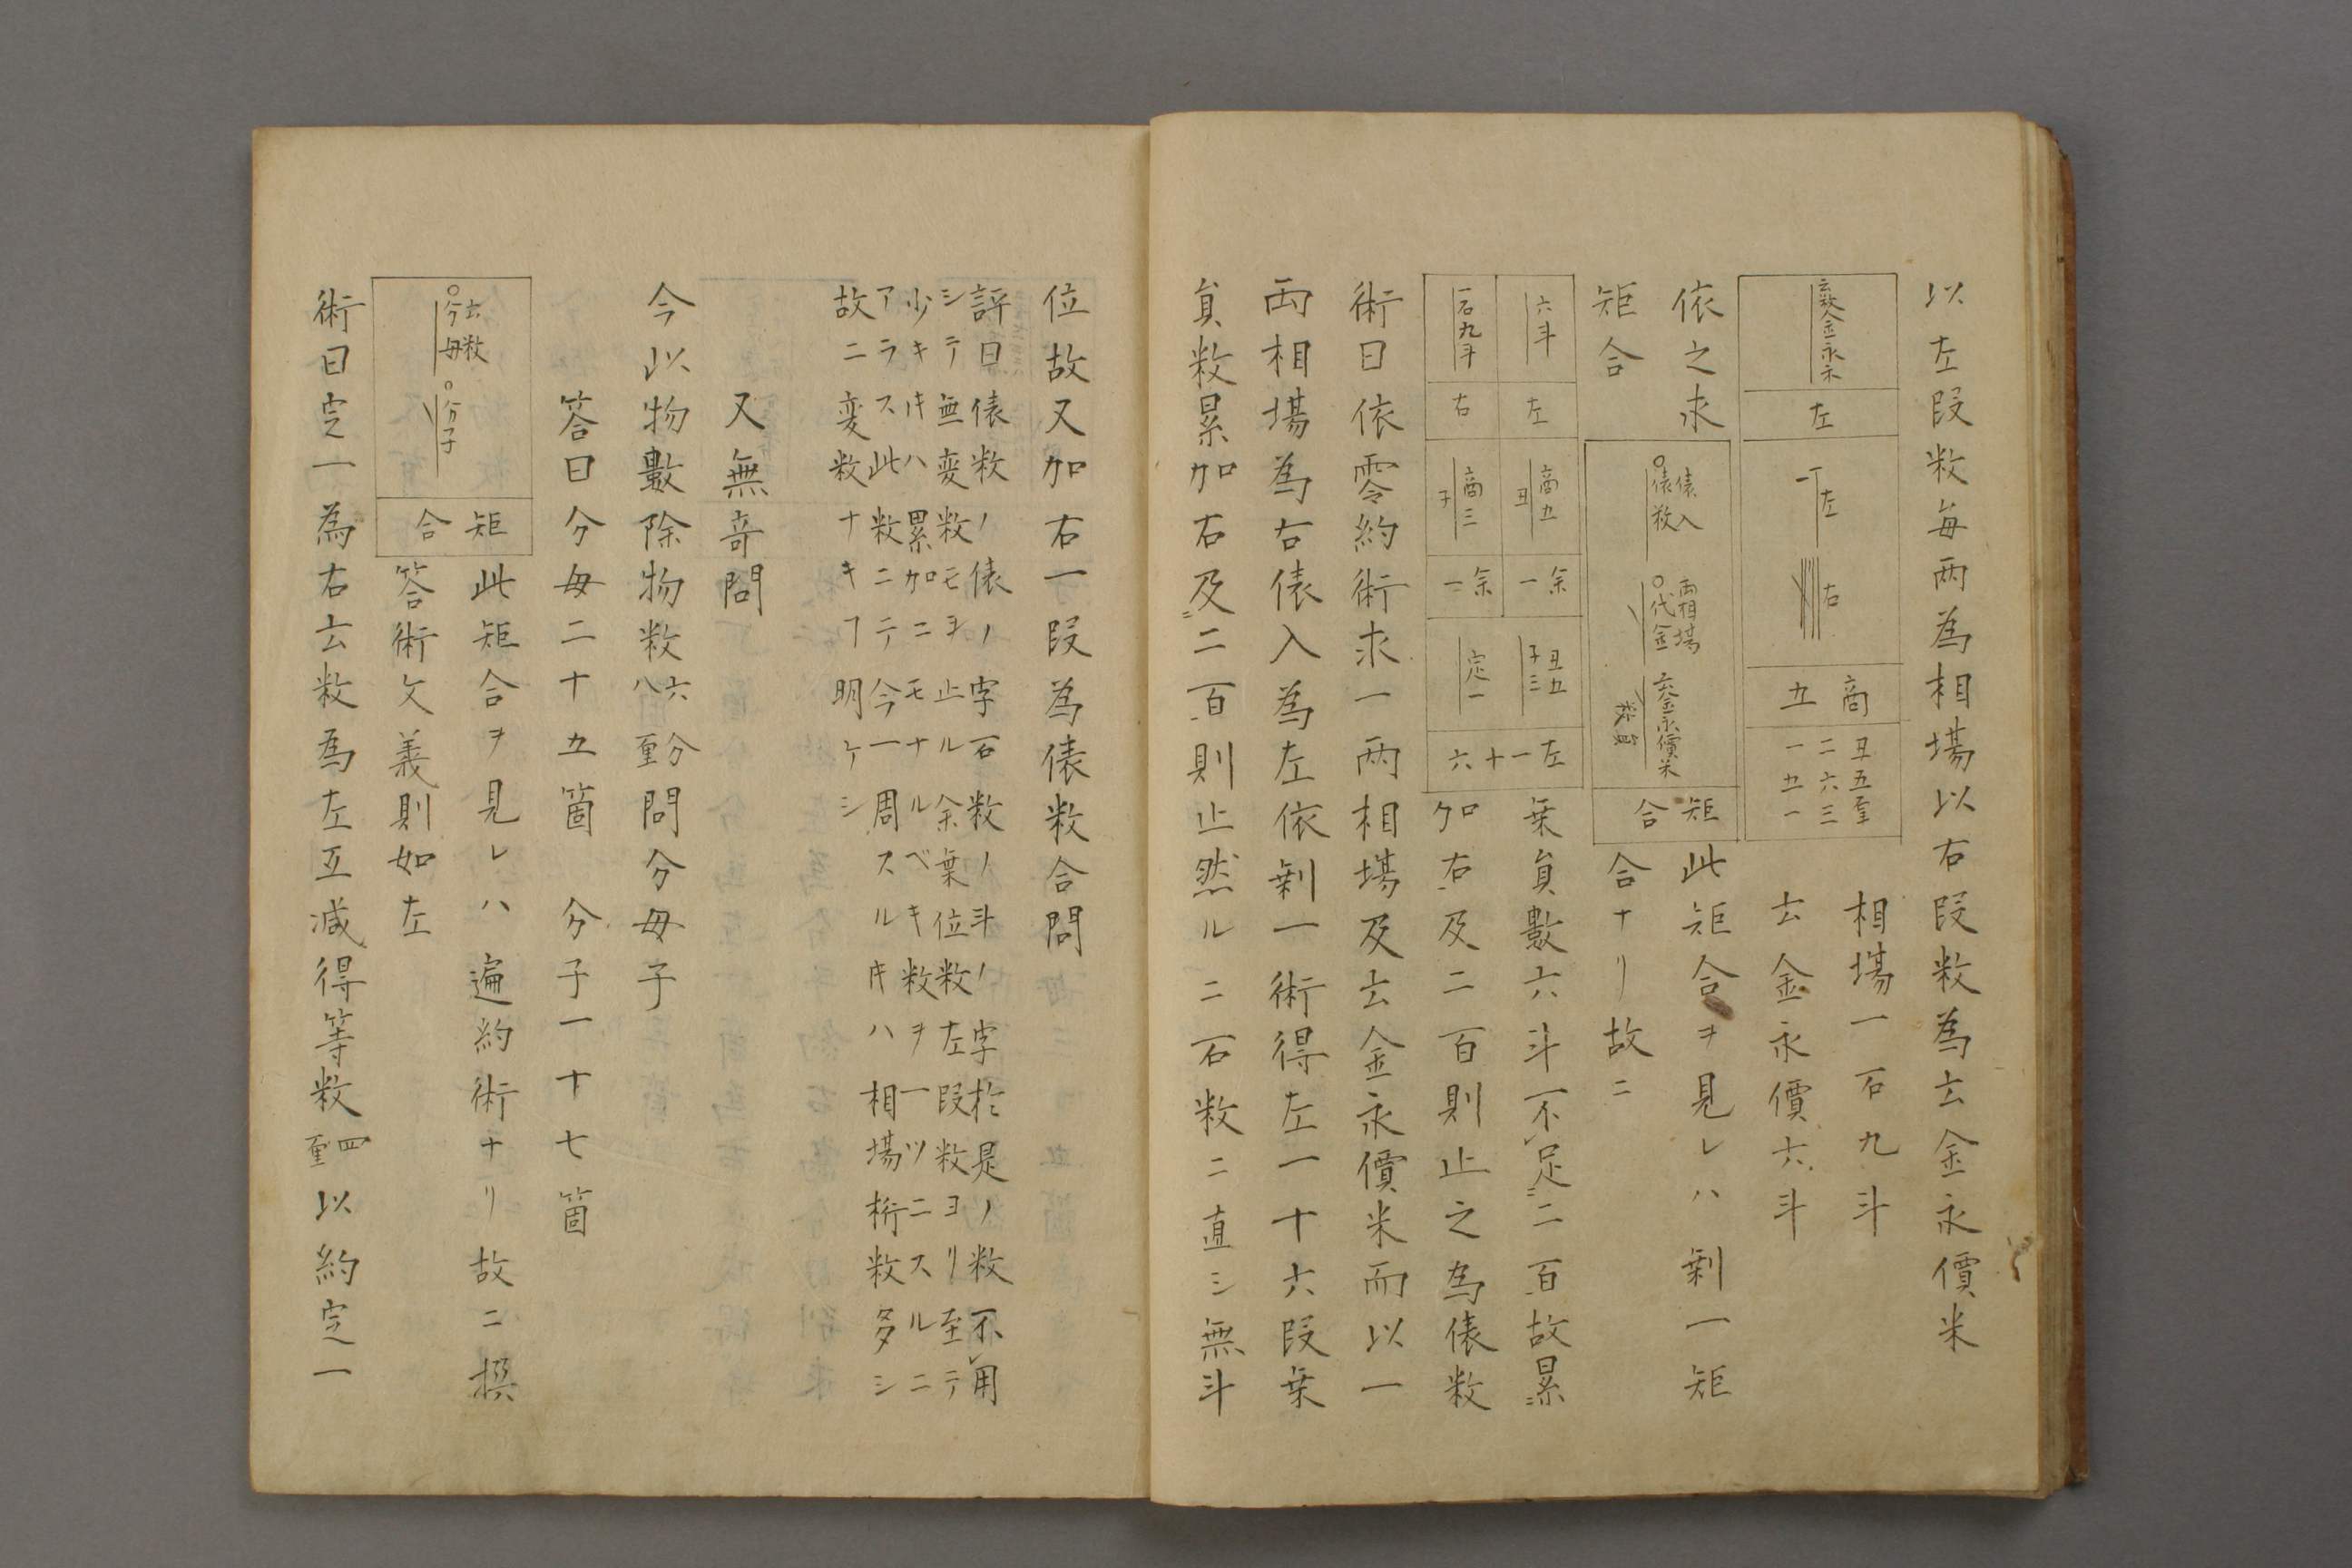 以左段数毎両為相場以右段数為云金永價米
云数金永永
左
丁左
右
商五
丑五至二六三一五一
相場一石九斗
云金永價六斗
依之求
矩合
俵入
俵数
両相場
代金
云金永價米
矩合
此矩合ヲ見レハ剰一矩
合ナリ故ニ
六斗
左
商五
丑
余一
丑五
子三
左一十六
一石九斗
右
商三
子
余一
定一
乗員數六斗不足二百故累
加右及二百則止之為俵数
術曰依零約術求一両相場及云金永價米而以一
両相場為右俵入為左依剰一術得左一十六段乗
員数累加右及二百則止然ルニ石数ニ直シ無斗
位故又加右一段為俵数合問
評曰俵数ノ俵ノ字石数ノ斗ノ字於是ノ数不用
シテ無変数モヨ止ル余棄位数左段数ヨリ至テ
少キ𪜈ハ累加ニモナルベキ数ヲ一ツニスルニ
アラス此数ニテ今一周スル𪜈ハ相場桁数多シ
故ニ変数ナキヿ明ケシ
又無奇問
今以物數除物数六分八重問分母子
答曰分母二十五箇 分子一十七箇
云数
分母
分子
矩合
此矩合ヲ見レハ遍約術ナリ故ニ撰
答術文義則如左
術曰定一為右云数為左互減得等数四重以約定一